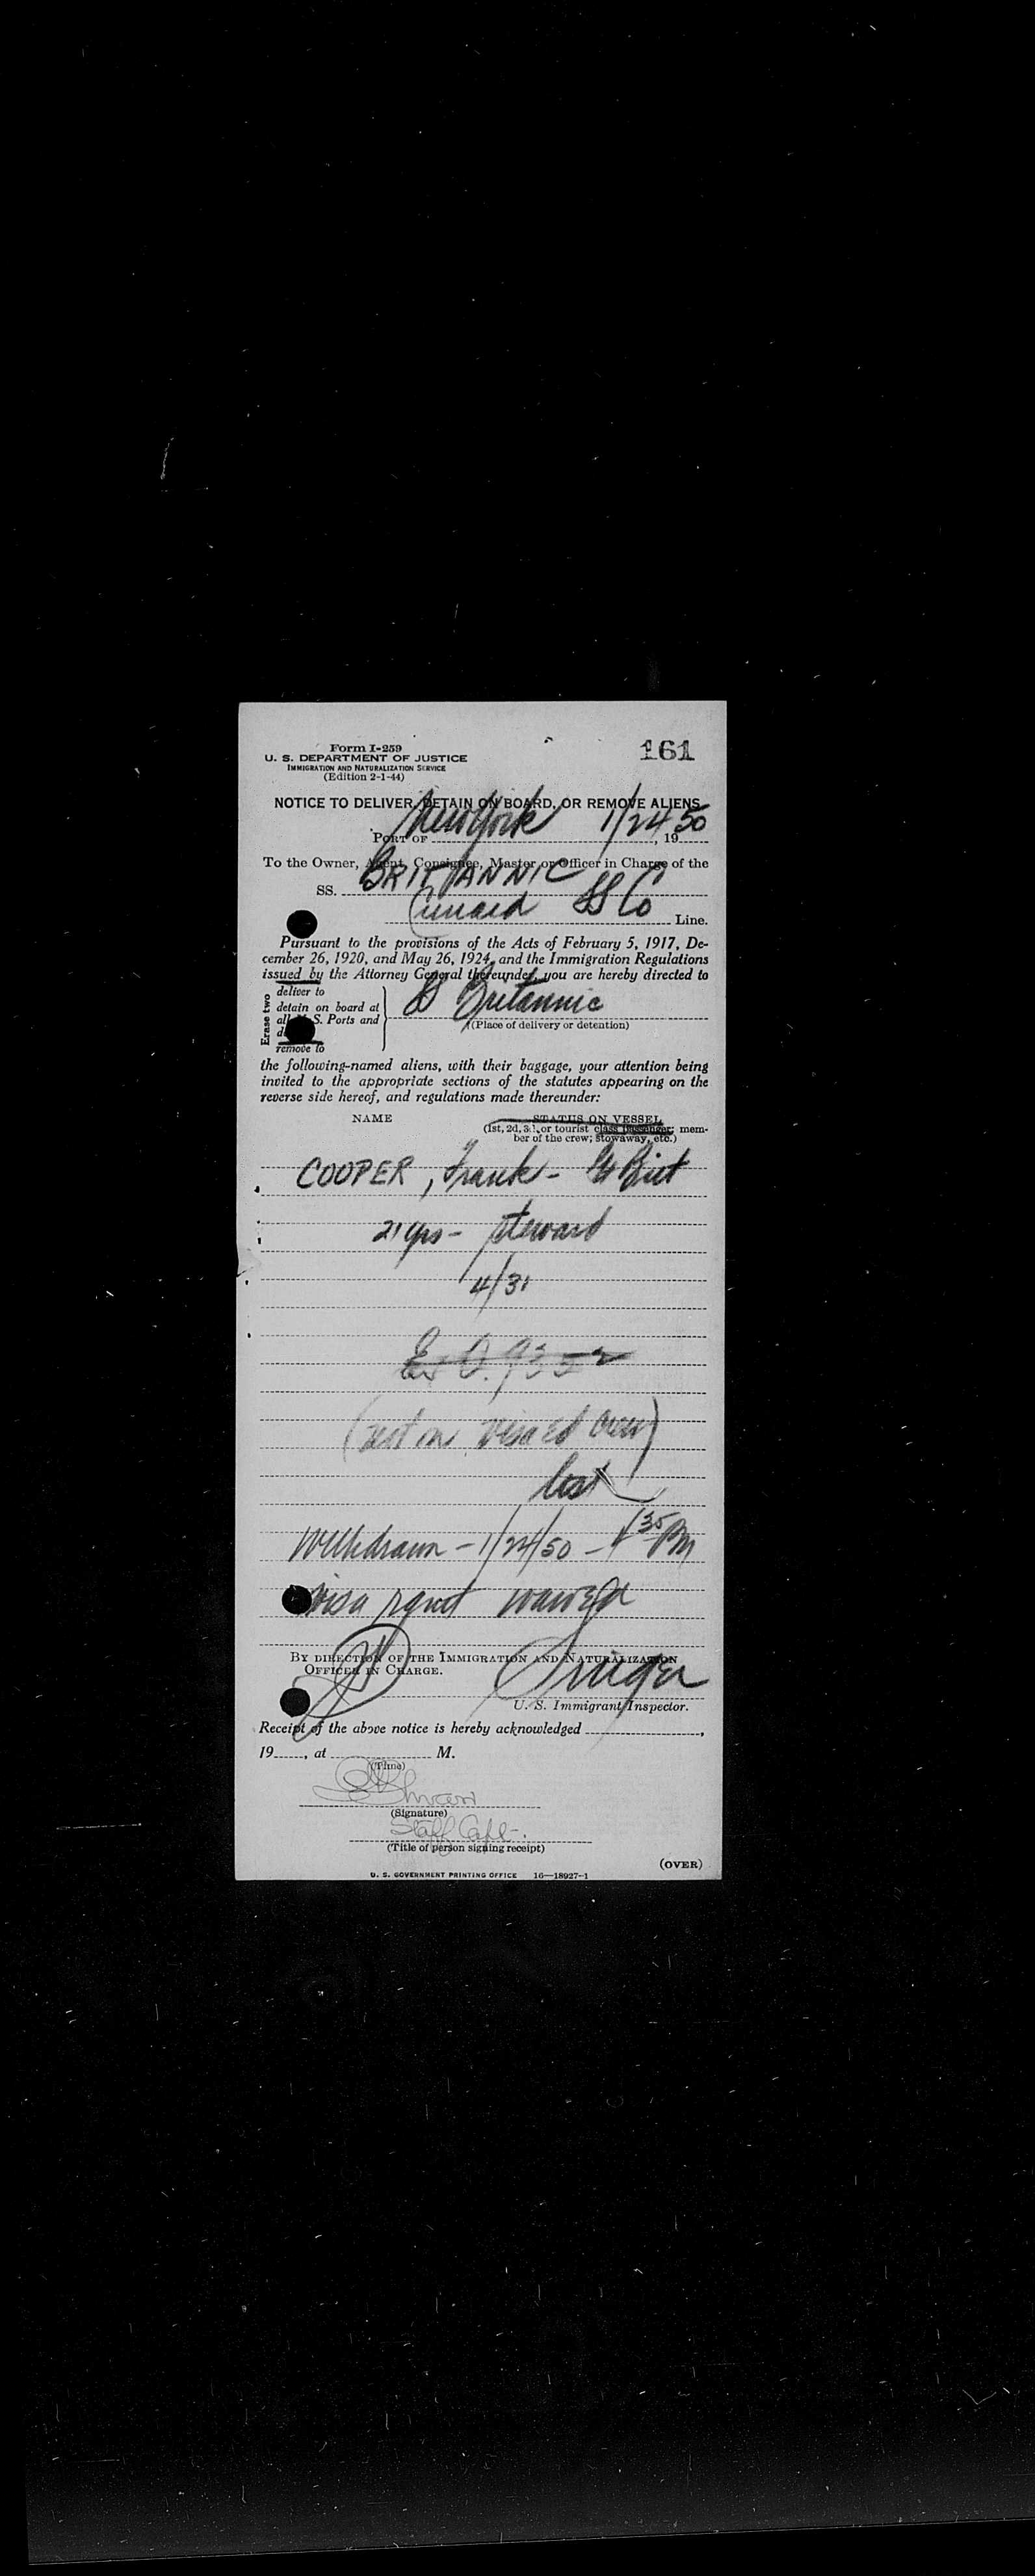 Form I-259
161
U. S. DEPARTMENT OF JUSTICE
IMMIGRATION AND NATURALIZATION SERVICE
(Edition 2-1-44)
NOTICE TO DELIVER, DETAIN ON BOARD, OR REMOVE ALIENS
PORT OF New York 1/24, 1950
To the Owner, Agent, Consignee, Master or Officer in Charge of the
SS. BRITANNIC
Cunard SS Co Line.
Pursuant to the provisions of the Acts of February 5, 1917, De-
cember 26, 1920, and May 26, 1924, and the Immigration Regulations
issued by the Attorney General thereunder, you are hereby directed to
Erase two
deliver to
detain on board at
all U. S. Ports and
remove to
SS Britannic
(Place of delivery or detention)
the following-named aliens, with their baggage, your attention being
invited to the appropriate sections of the statutes appearing on the
reverse side hereof, and regulations made thereunder:
NAME STATUS ON VESSEL
(1st, 2d, 3d, or tourist class passenger; mem-
ber of the crew; stowaway, etc.)
COOPER, Frank - Gt Brit
21 yrs - steward
4/31
(not on visaed crew)
list
Withdrawn - 1/24/50 - 4 35 PM
visa rqmt waived
BY DIRECTION OF THE IMMIGRATION AND NATURALIZATION
OFFICER IN CHARGE.
Singer
U. S. Immigrant Inspector.
Receipt of the above notice is hereby acknowledged ,
19 , at M.
(Time)
(Signature)
Staff Capt.
(Title of person signing receipt)
(OVER)
U. S. GOVERNMENT PRINTING OFFICE 16—18927-1